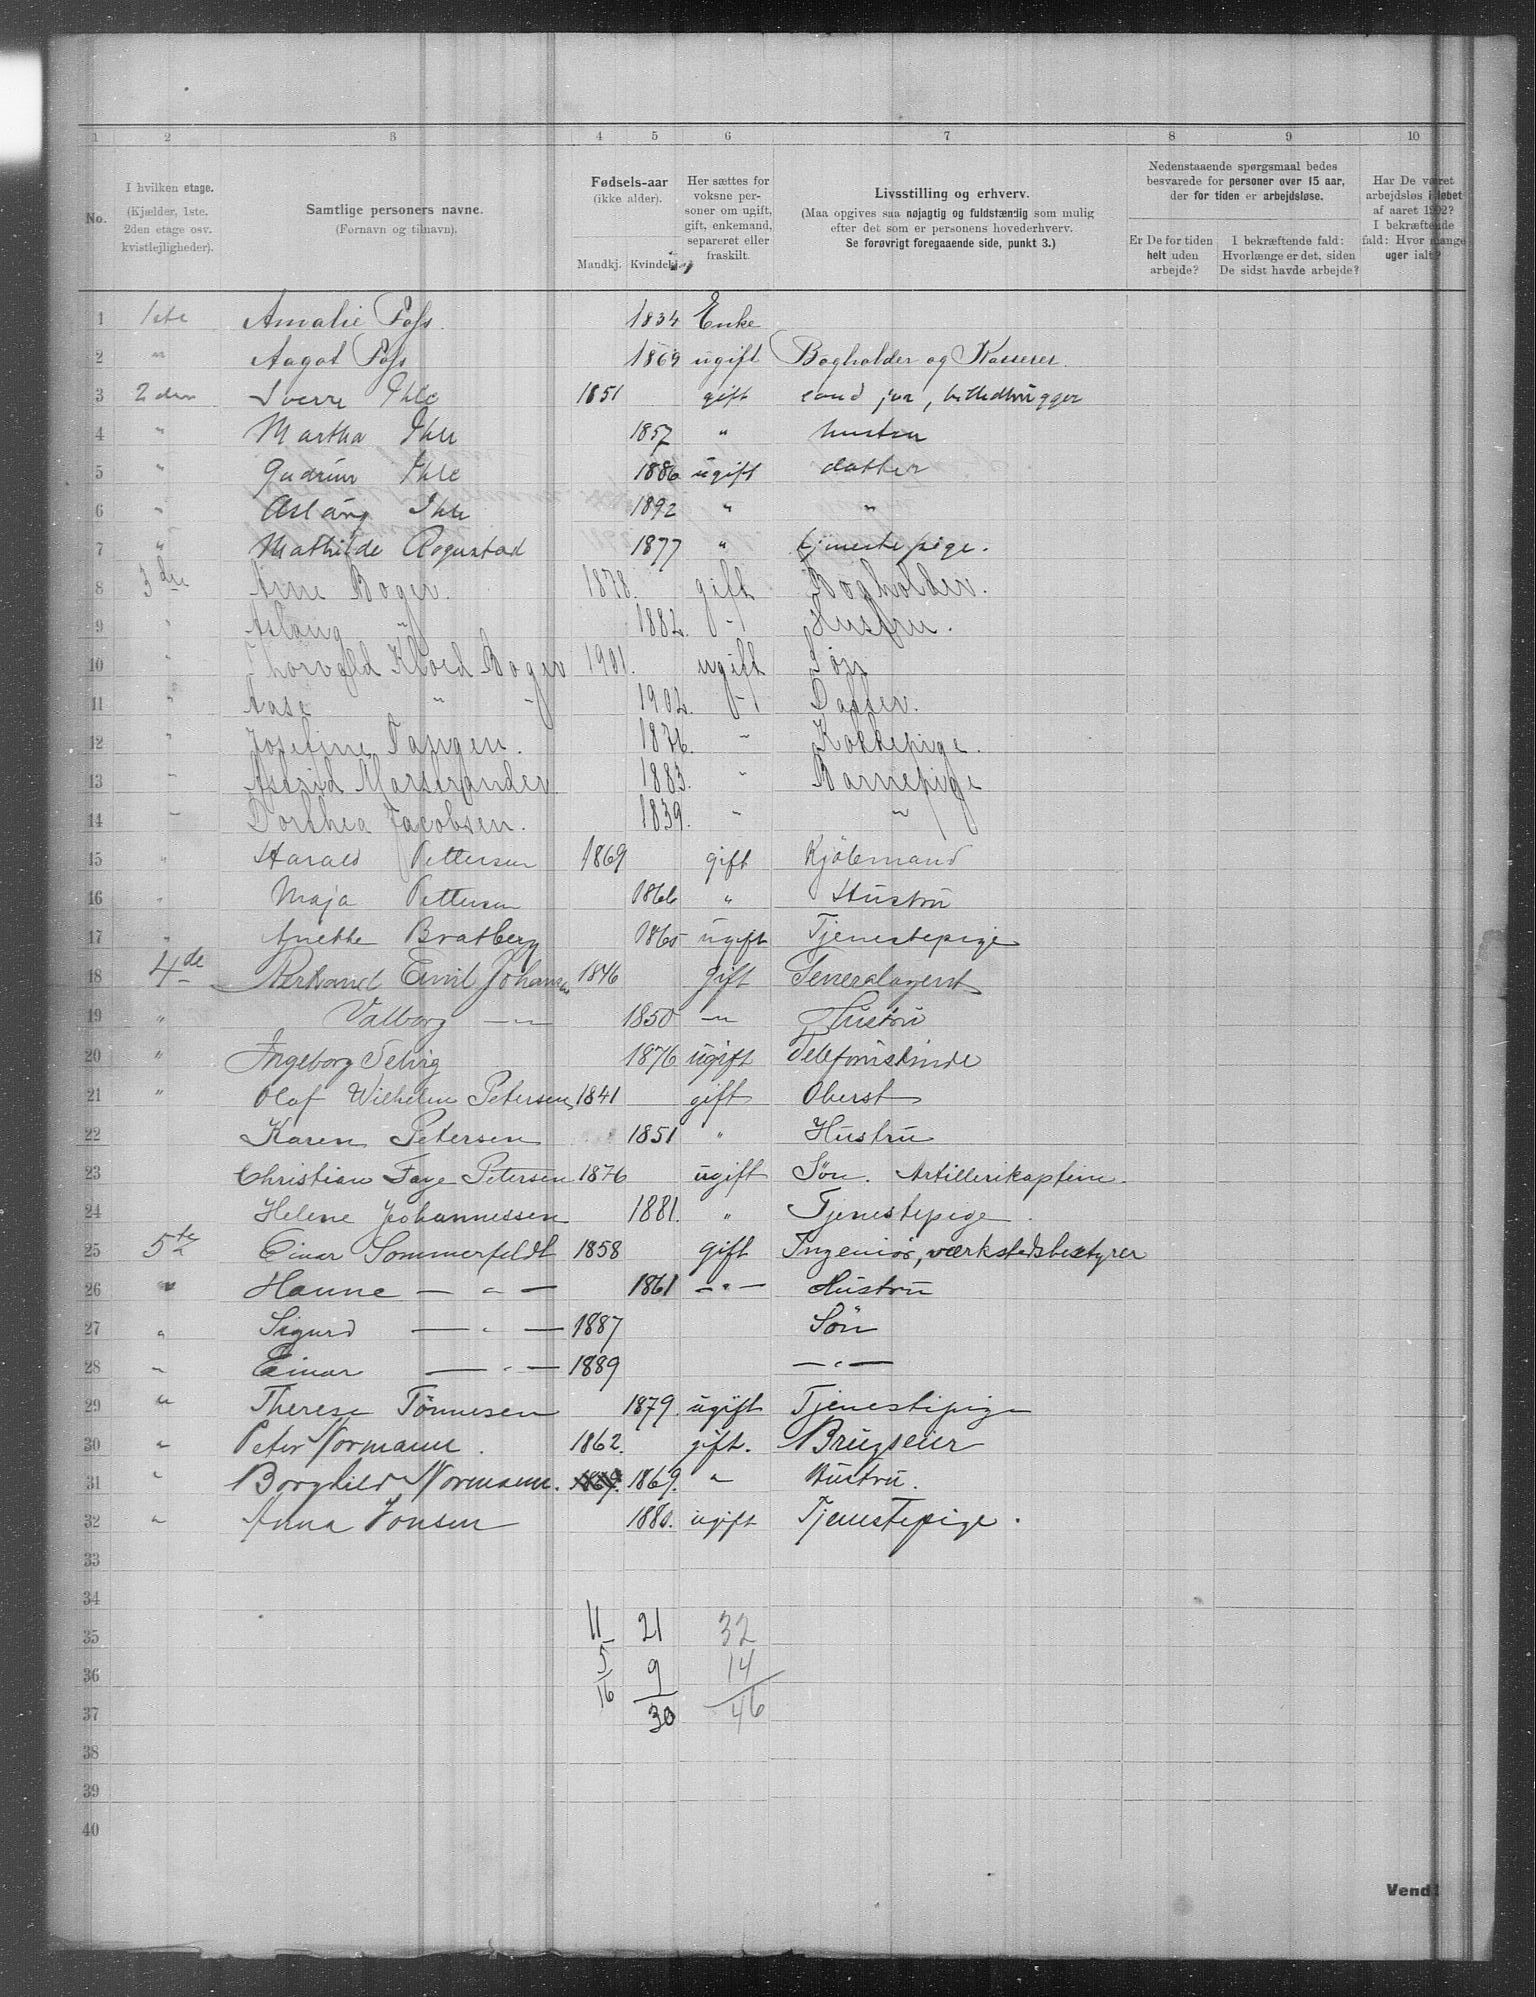 1 2 3 4 5 6 7 8 9 10
No.
I hvilken etage. (Kjælder, 1ste, 2den etage osv. kvistlejligheder).
Samtlige personers navne. (Fornavn og tilnavn).
Fødsels-aar (ikke alder). Mandkj. Kvindekj.
Her sættes for voksne personer om ugift, gift, enkemand, separeret eller fraskilt.
Livsstilling og erhverv. (Maa opgives saa nøjagtig og fuldstændig som mulig efter det som er personens hovederhverv. Se forøvrigt foregaaende side, punkt 3.)
Nedenstaaende spørgsmaal bedes besvarede for personer over 15 aar, der for tiden er arbejdsløse.
Er De for tiden helt uden arbejde?
I bekræftende fald: Hvorlænge er det, siden De sidst havde arbejde?
Har De været arbejdsløs i løbet af aaret 1902? I bekræftende fald: Hvor mange uger ialt?
1 1ste Amalie Foss. 1834 Enke
2 " Aagot Foss 1869 ugift Bogholder og Kasserer.
3 2den Sverre Ihle 1851 gift cand jur, billedhugger
4 " Martha Ihle 1857 " hustru
5 " Gudrun Ihle 1886 ugift datter
6 " Aslaug Ihle 1892 " "
7 " Mathilde Rognstad 1877 " tjenestepige.
8 3die Arne Boger. 1878. gift Bogholder.
9 " Aslaug " 1882. -"- Husfru.
10 " Thorvald Kloed Boger 1901. ugift Søn
11 " Aase " - 1902. -"- Datter.
12 " Josefine Tangen. 1876. " Kokkepige.
13 " Astrid Marstrander. 1883. " Barnepige
14 " Dorthea Jacobsen. 1839. " "
15 " Harald Pettersen 1869 gift Kjøbmand
16 " Maja Pettersen 1866 " Hustru
17 " Anethe Bratberg 1865 ugift Tjenestepige
18 4de Emil Johannes 1846 gift Generalagent
19 " Valborg —"— 1850 —"— Hustru
20 " Ingeborg Selvig 1876 ugift Telefonistinde
21 " Olaf Wilhelm Petersen 1841 gift Oberst
22 Karen Petersen 1851 " Hustru
23 Christian Faye Petersen 1876 ugift Søn. Artillerikaptein.
24 Helene Johannessen 1881. " Tjenestepige.
25 5te Einar Sommerfeldt 1858 gift Ingeniør, værkstedsbestyrer
26 " Hanne — " — 1861 — " — Hustru
27 " Sigurd — " — 1887 Søn
28 " Einar — " — 1889 — " —
29 " Therese Tönnesen 1879. ugift Tjenestepige
30 " Peter Normann. 1862. gift. Brugseier
31 " Borghild Normann. 1869. 1869. " Hustru.
32 " Anna Jonsen 1880. ugift Tjenestepige.
33
34
35 11 21 32
36 5 9 14
37 16 30 46
38
39
40
Vend!